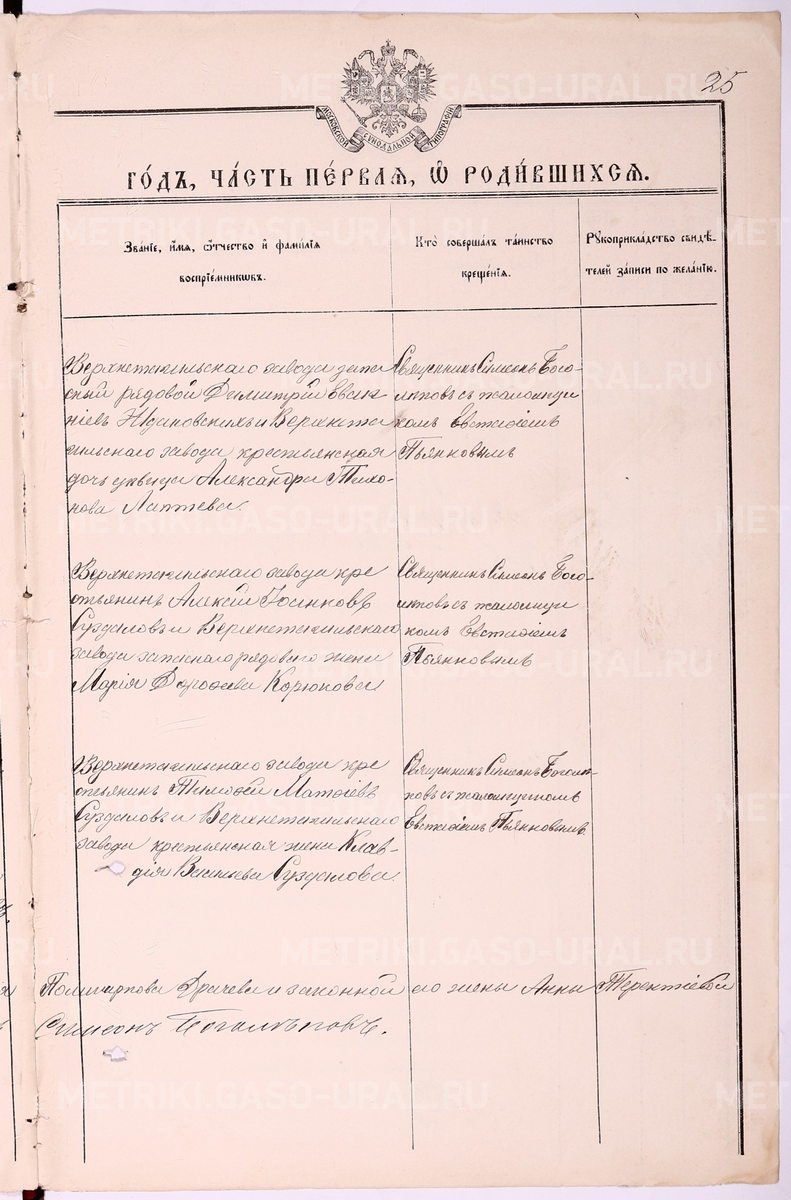 25
МОСКОВСКОЙ СѴНОДАЛЬНОЙ ТИПОГРАФІИ
ГО́ДЪ, ЧА́СТЬ ПЕ́РВАѦ, Ѡ҆ РОДИ́ВШИХСѦ.
Зва́ніе, и҆́мя, ѻ҆́тчество и҆ фами́лія
воспріе́мниковъ.
Кто̀ соверша́лъ та́инство
креще́нія.
Рꙋкоприкла́дство свидѣ́-
телей за́писи по жела́нію.
Верхнетагильскаго завода запа
сный рядовой Димитрій Евг
ніевъ Ждановскихъ и Верхнета
гильскаго завода крестьянская
дочь девица Александра Тихо-
нова Лаптева.
Священникъ Симеонъ Бого-
лѣповъ съ псаломщи
комъ Евстафіемъ
Пьянковымъ
Верхнетагильскаго завода кре
стьянинъ Алексій Іоанновъ
Суздаловъ и Верхнетагильскаго
завода запаснаго рядового жена
Марія Дорофеева Корюкова
Священникъ Симеонъ Бого-
лѣповъ съ псаломщи
комъ Евстафіемъ
Пьянковымъ
Верхнетагильскаго завода кре
стьянинъ Тимофей Матфіевъ
Суздаловъ и Верхнетагильскаго
завода крестьянская жена Клав-
дія Васильева Суздалова.
Священникъ Симеонъ Боголѣ-
повъ съ псаломщикомъ
Евстафіемъ Пьянковымъ
Поликарпова Драчева и законной его жены Анны Терентіевой
Симеонъ Боголѣповъ.
METRIKI.GASO-URAL.RU